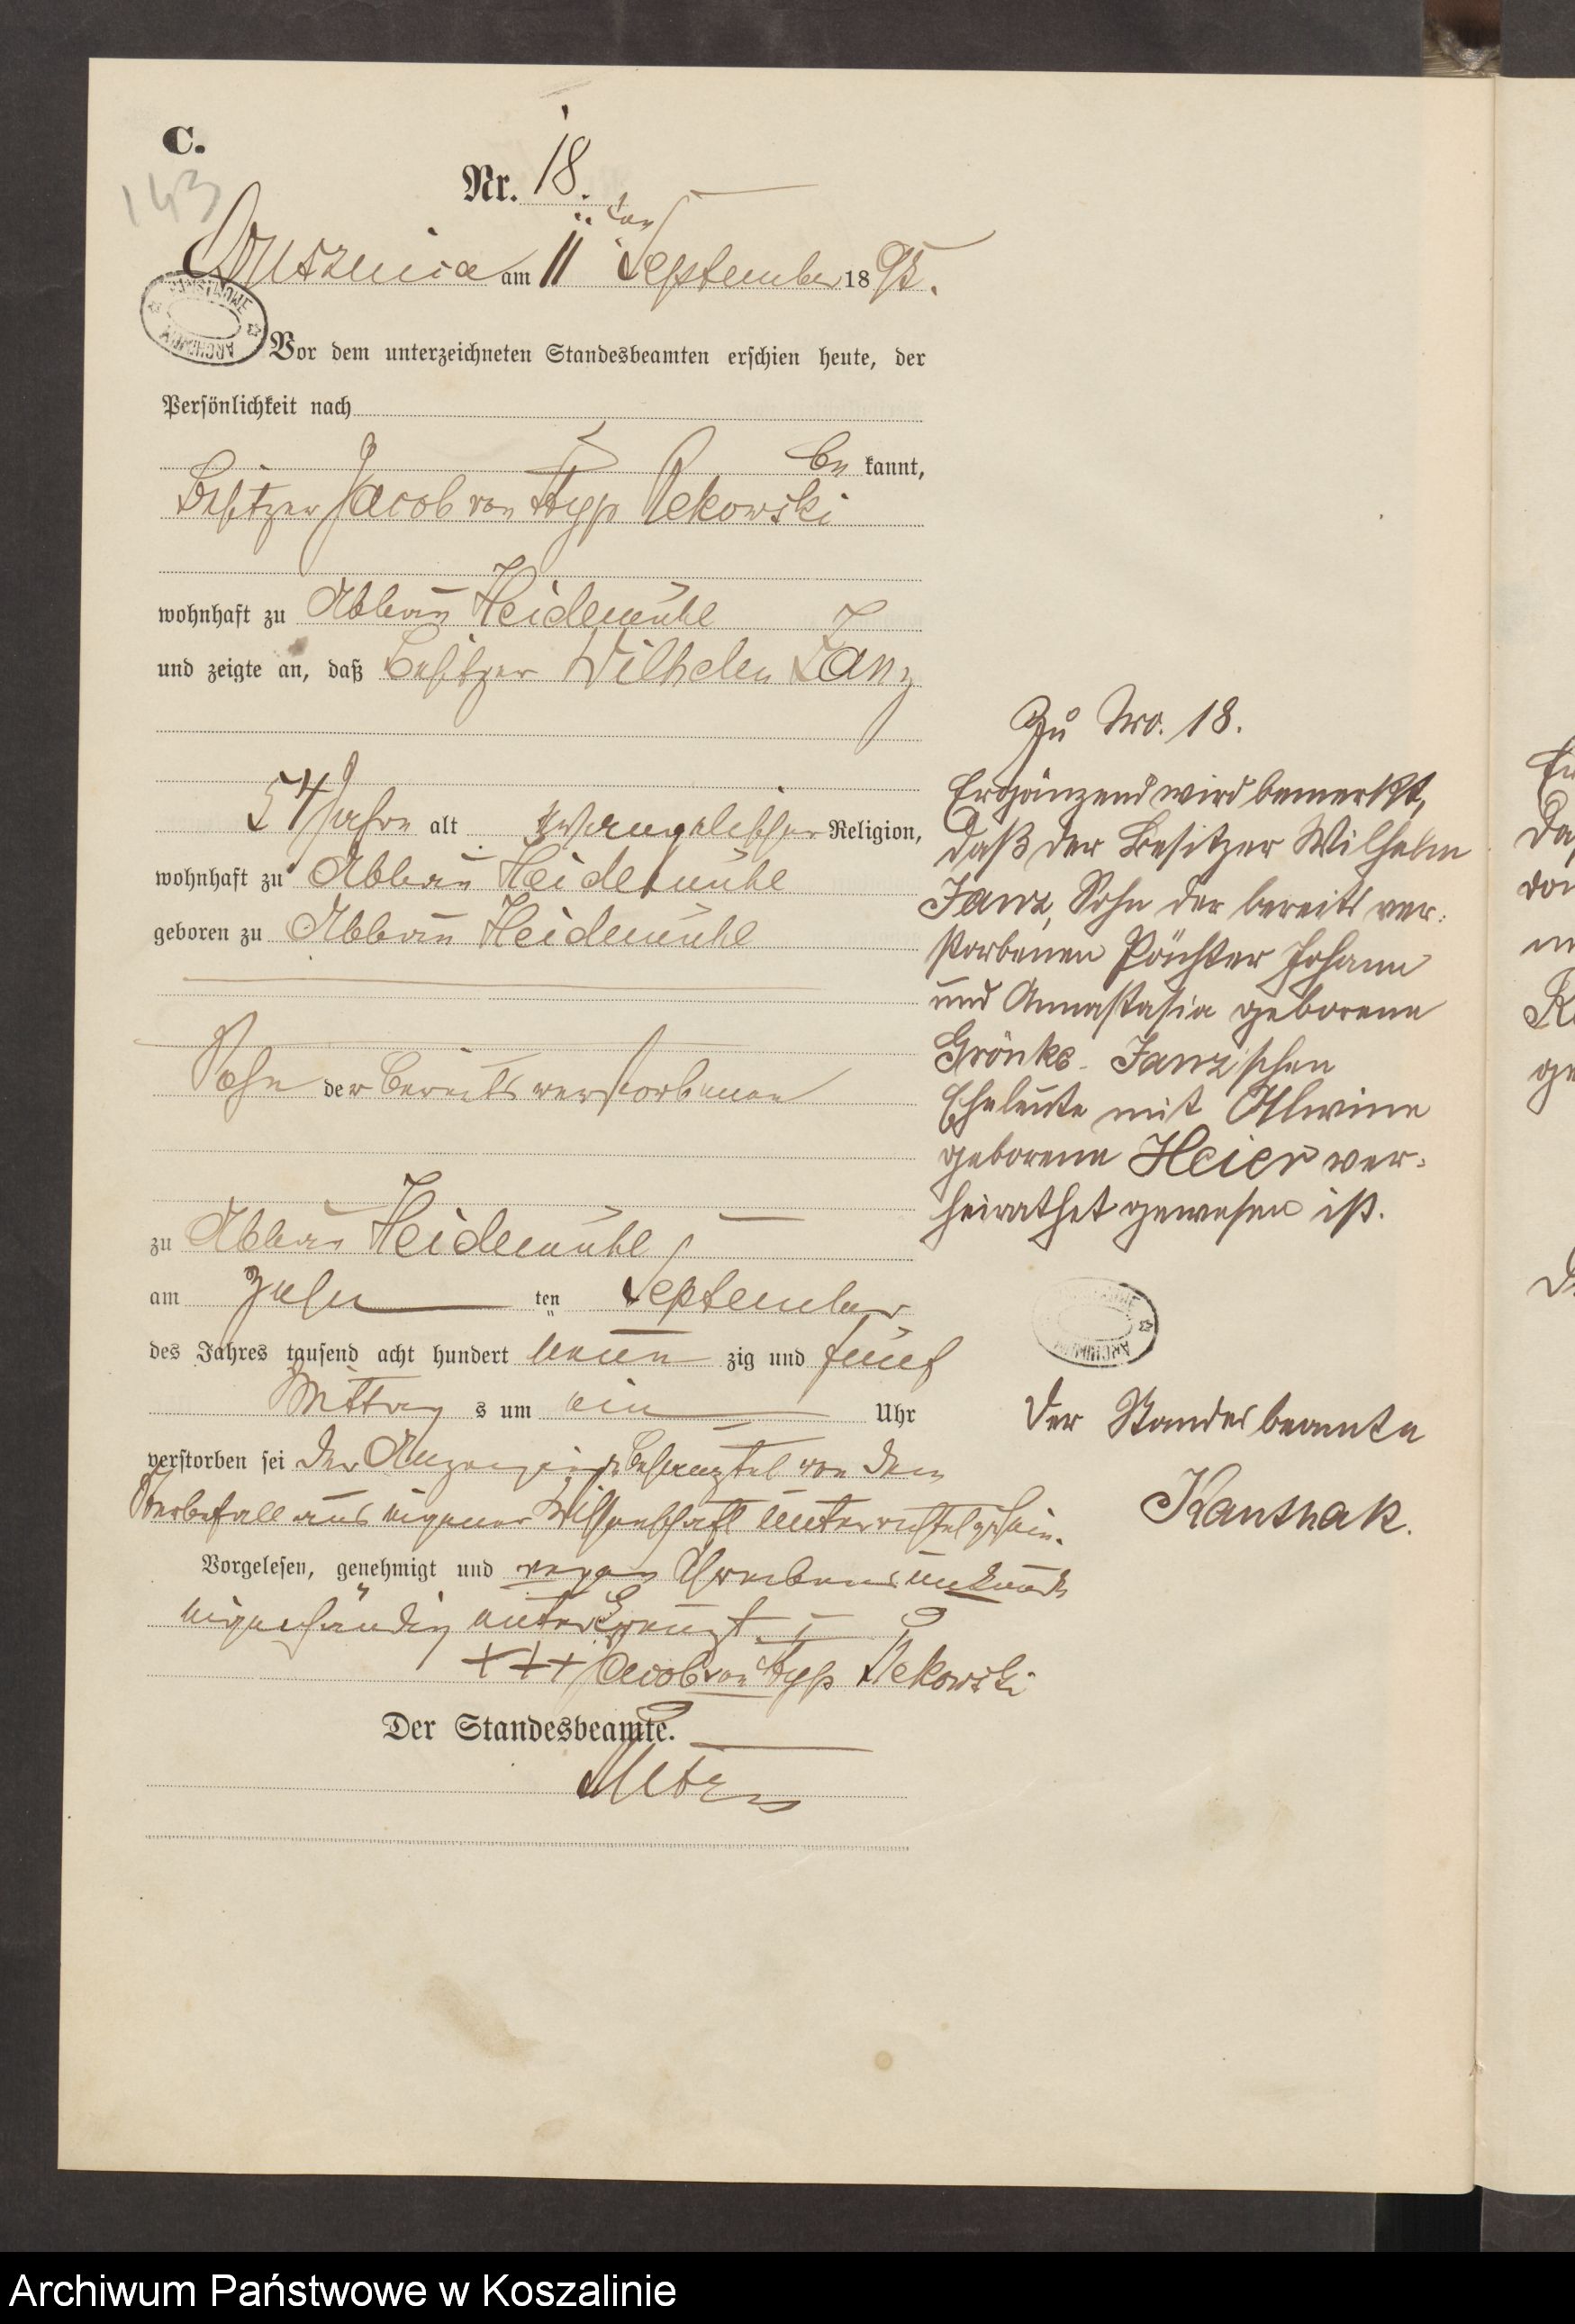 C.
143
Nr. 18.
am 11 ten September 1895.
Vor dem unterzeichneten Standesbeamten erschien heute, der
Persönlichkeit nach
be kannt,
Besitzer Jacob von Styp Rekowski
wohnhaft zu Abbau Heidemühl
und zeigte an, daß Besitzer Wilhelm Janz
54 Jahre alt evangelischer Religion,
wohnhaft zu Abbau Heidemühl
geboren zu Abbau Heidemühl
Sohn der bereits verstorbenen
zu Abbau Heidemühl
am zehn ten September
des Jahres tausend acht hundert neun zig und fünf
Mittag s um ein Uhr
verstorben sei der Anzeigende von dem
Sterbefall aus eigener Wissenschaft unterrichtet zu sein.
Vorgelesen, genehmigt und wegen Schreibens unkunde
eigenhändig unterkreuzt.
+++ Jacob von Styp Rekowski
Der Standesbeamte.
Zu Nro. 18.
Ergänzend wird bemerkt,
daß der Besitzer Wilhelm
Janz, Sohn der bereits ver-
storbenen Pächter Johann
und Annastasia geborene
Grönke-Janz'schen
Eheleute mit Ottwine
geborene Heier ver-
heirathet gewesen ist.
Der Standesbeamte
Kantnak.
Archiwum Państwowe w Koszalinie